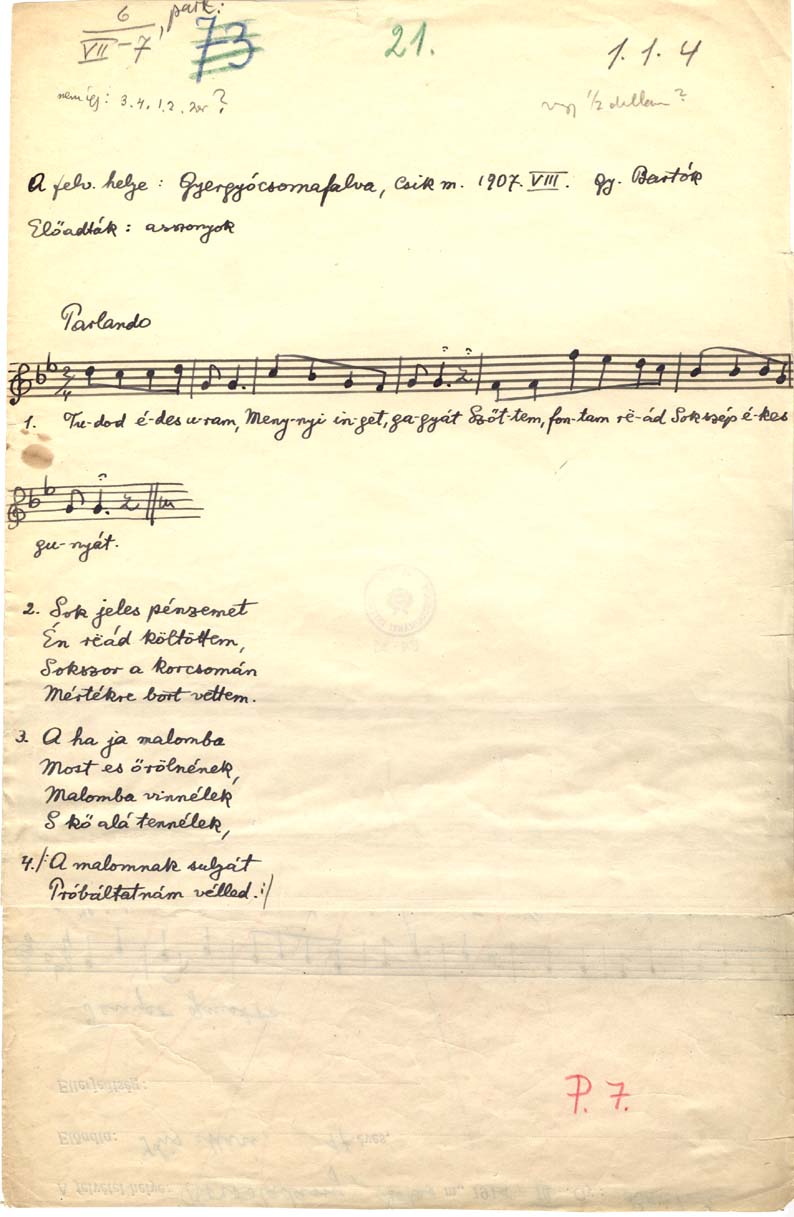 6
VII-7, park:
73
21.
1.1.4
3.4.1.2. ?
½ dallam?
A felv. helye: Gyergyócsomafalva, Csik m. 1907. VIII. gy. Bartók
Előadták: asszonyok
Parlando
2/4
1. Tu-dod é-des u-ram, Meny-nyi in-get, ga-gyát Szőt-tem, fon-tam rë-ád Sok szép é-kes
gu-nyát.
2. Sok jeles pénzemet
Én rëád költöttem,
Sokszor a korcsomán
Mértékre bort vettem.
3. A ha ja malomba
Most es őrölnének,
Malomba vinnélek
S kő alá tennélek,
4./: A malomnak sulyát
Próbáltatnám vélled.:/
P. 7.
Elterjedtség:
Előadta: éves,
A felvétel helye: